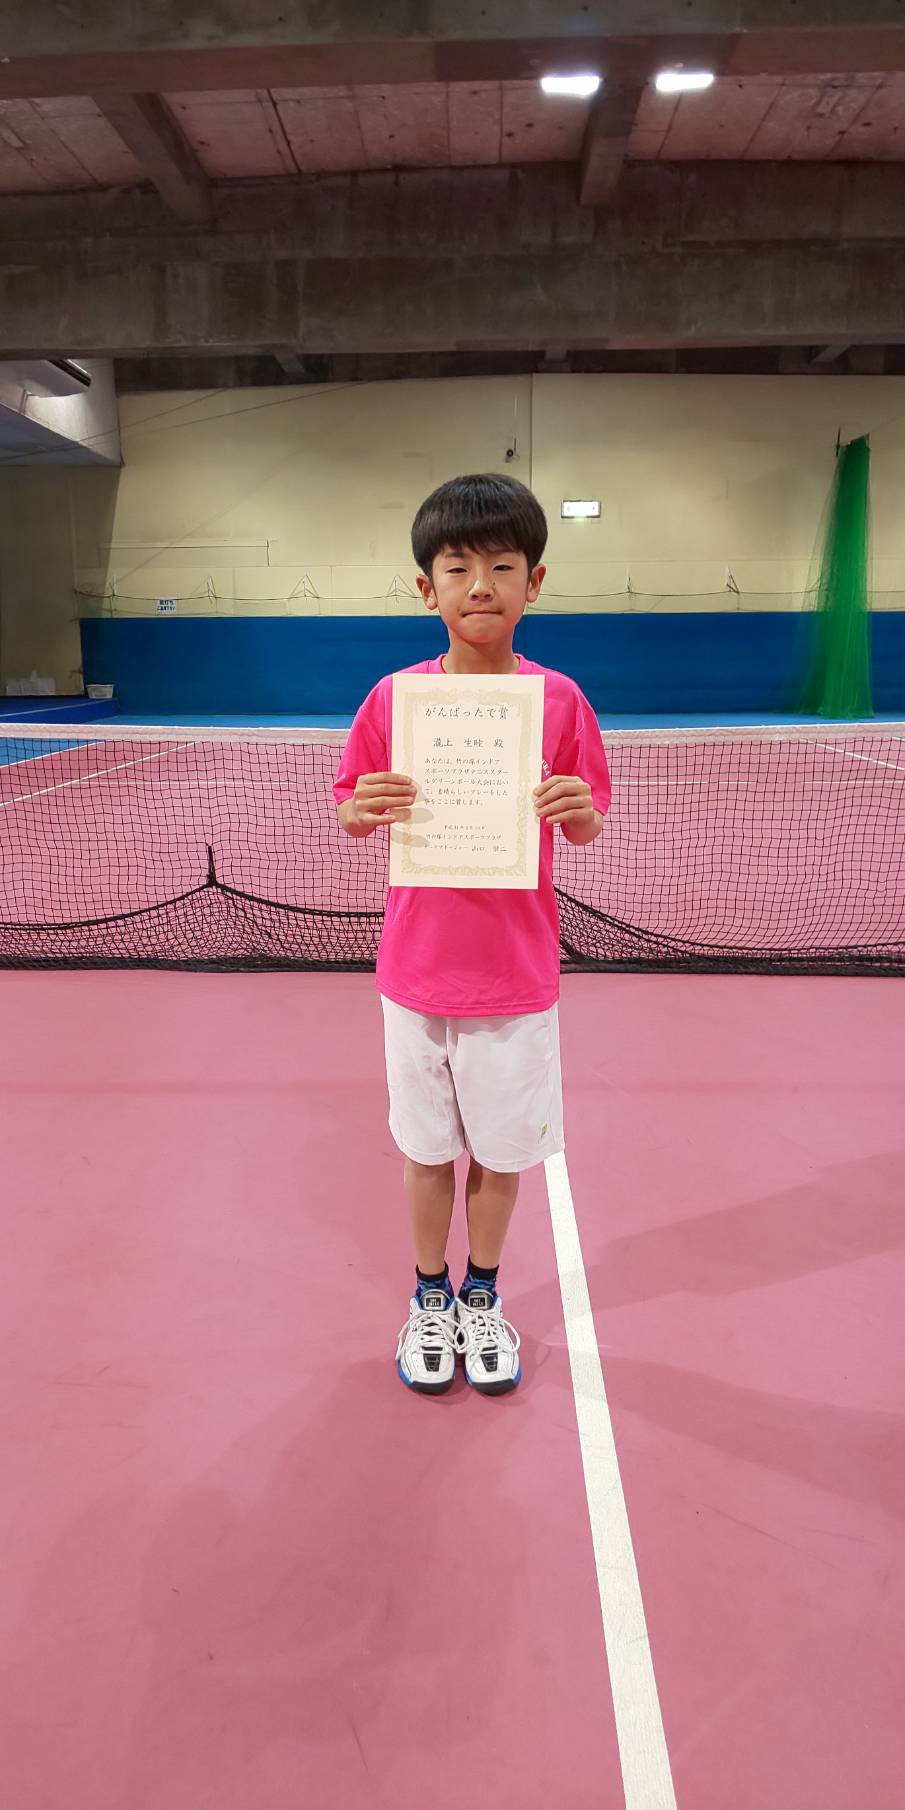 がんばったで賞
瀧上 生睦 殿
あなたは、竹の塚インドア
スポーツプラザテニススクー
ルグリーンボール大会におい
て、素晴らしいプレーをした
事をここに賞します。
竹の塚インドアスポーツプラザ
山口